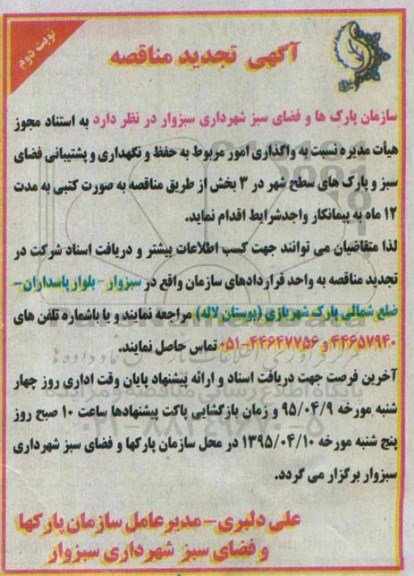 نوبت دوم
آگهی تجدید مناقصه
سازمان پارک ها و فضای سبز شهرداری سبزوار در نظر دارد به استناد مجوز
هیأت مدیره نسبت به واگذاری امور مربوط به حفظ و نگهداری و پشتیبانی فضای
سبز و پارک های سطح شهر در ۳ بخش از طریق مناقصه به صورت کتبی به مدت
۱۲ ماه به پیمانکار واجدشرایط اقدام نماید.
لذا متقاضیان می توانند جهت کسب اطلاعات بیشتر و دریافت اسناد شرکت در
تجدید مناقصه به واحد قراردادهای سازمان واقع در سبزوار - بلوار پاسداران-
ضلع شمالی پارک شهربازی (بوستان لاله) مراجعه نمایند و یا باشماره تلفن های
۴۴۶۵۷۹۴۰ و ۴۴۶۴۷۷۵۶-۰۵۱ تماس حاصل نمایند.
آخرین فرصت جهت دریافت اسناد و ارائه پیشنهاد پایان وقت اداری روز چهار
شنبه مورخه ۹۵/۰۴/۹ و زمان بازگشایی پاکت پیشنهادها ساعت ۱۰ صبح روز
پنج شنبه مورخه ۱۳۹۵/۰۴/۱۰ در محل سازمان پارکها و فضای سبز شهرداری
سبزوار برگزار می گردد.
علی دلبری - مدیرعامل سازمان پارکها
و فضای سبز شهرداری سبزوار